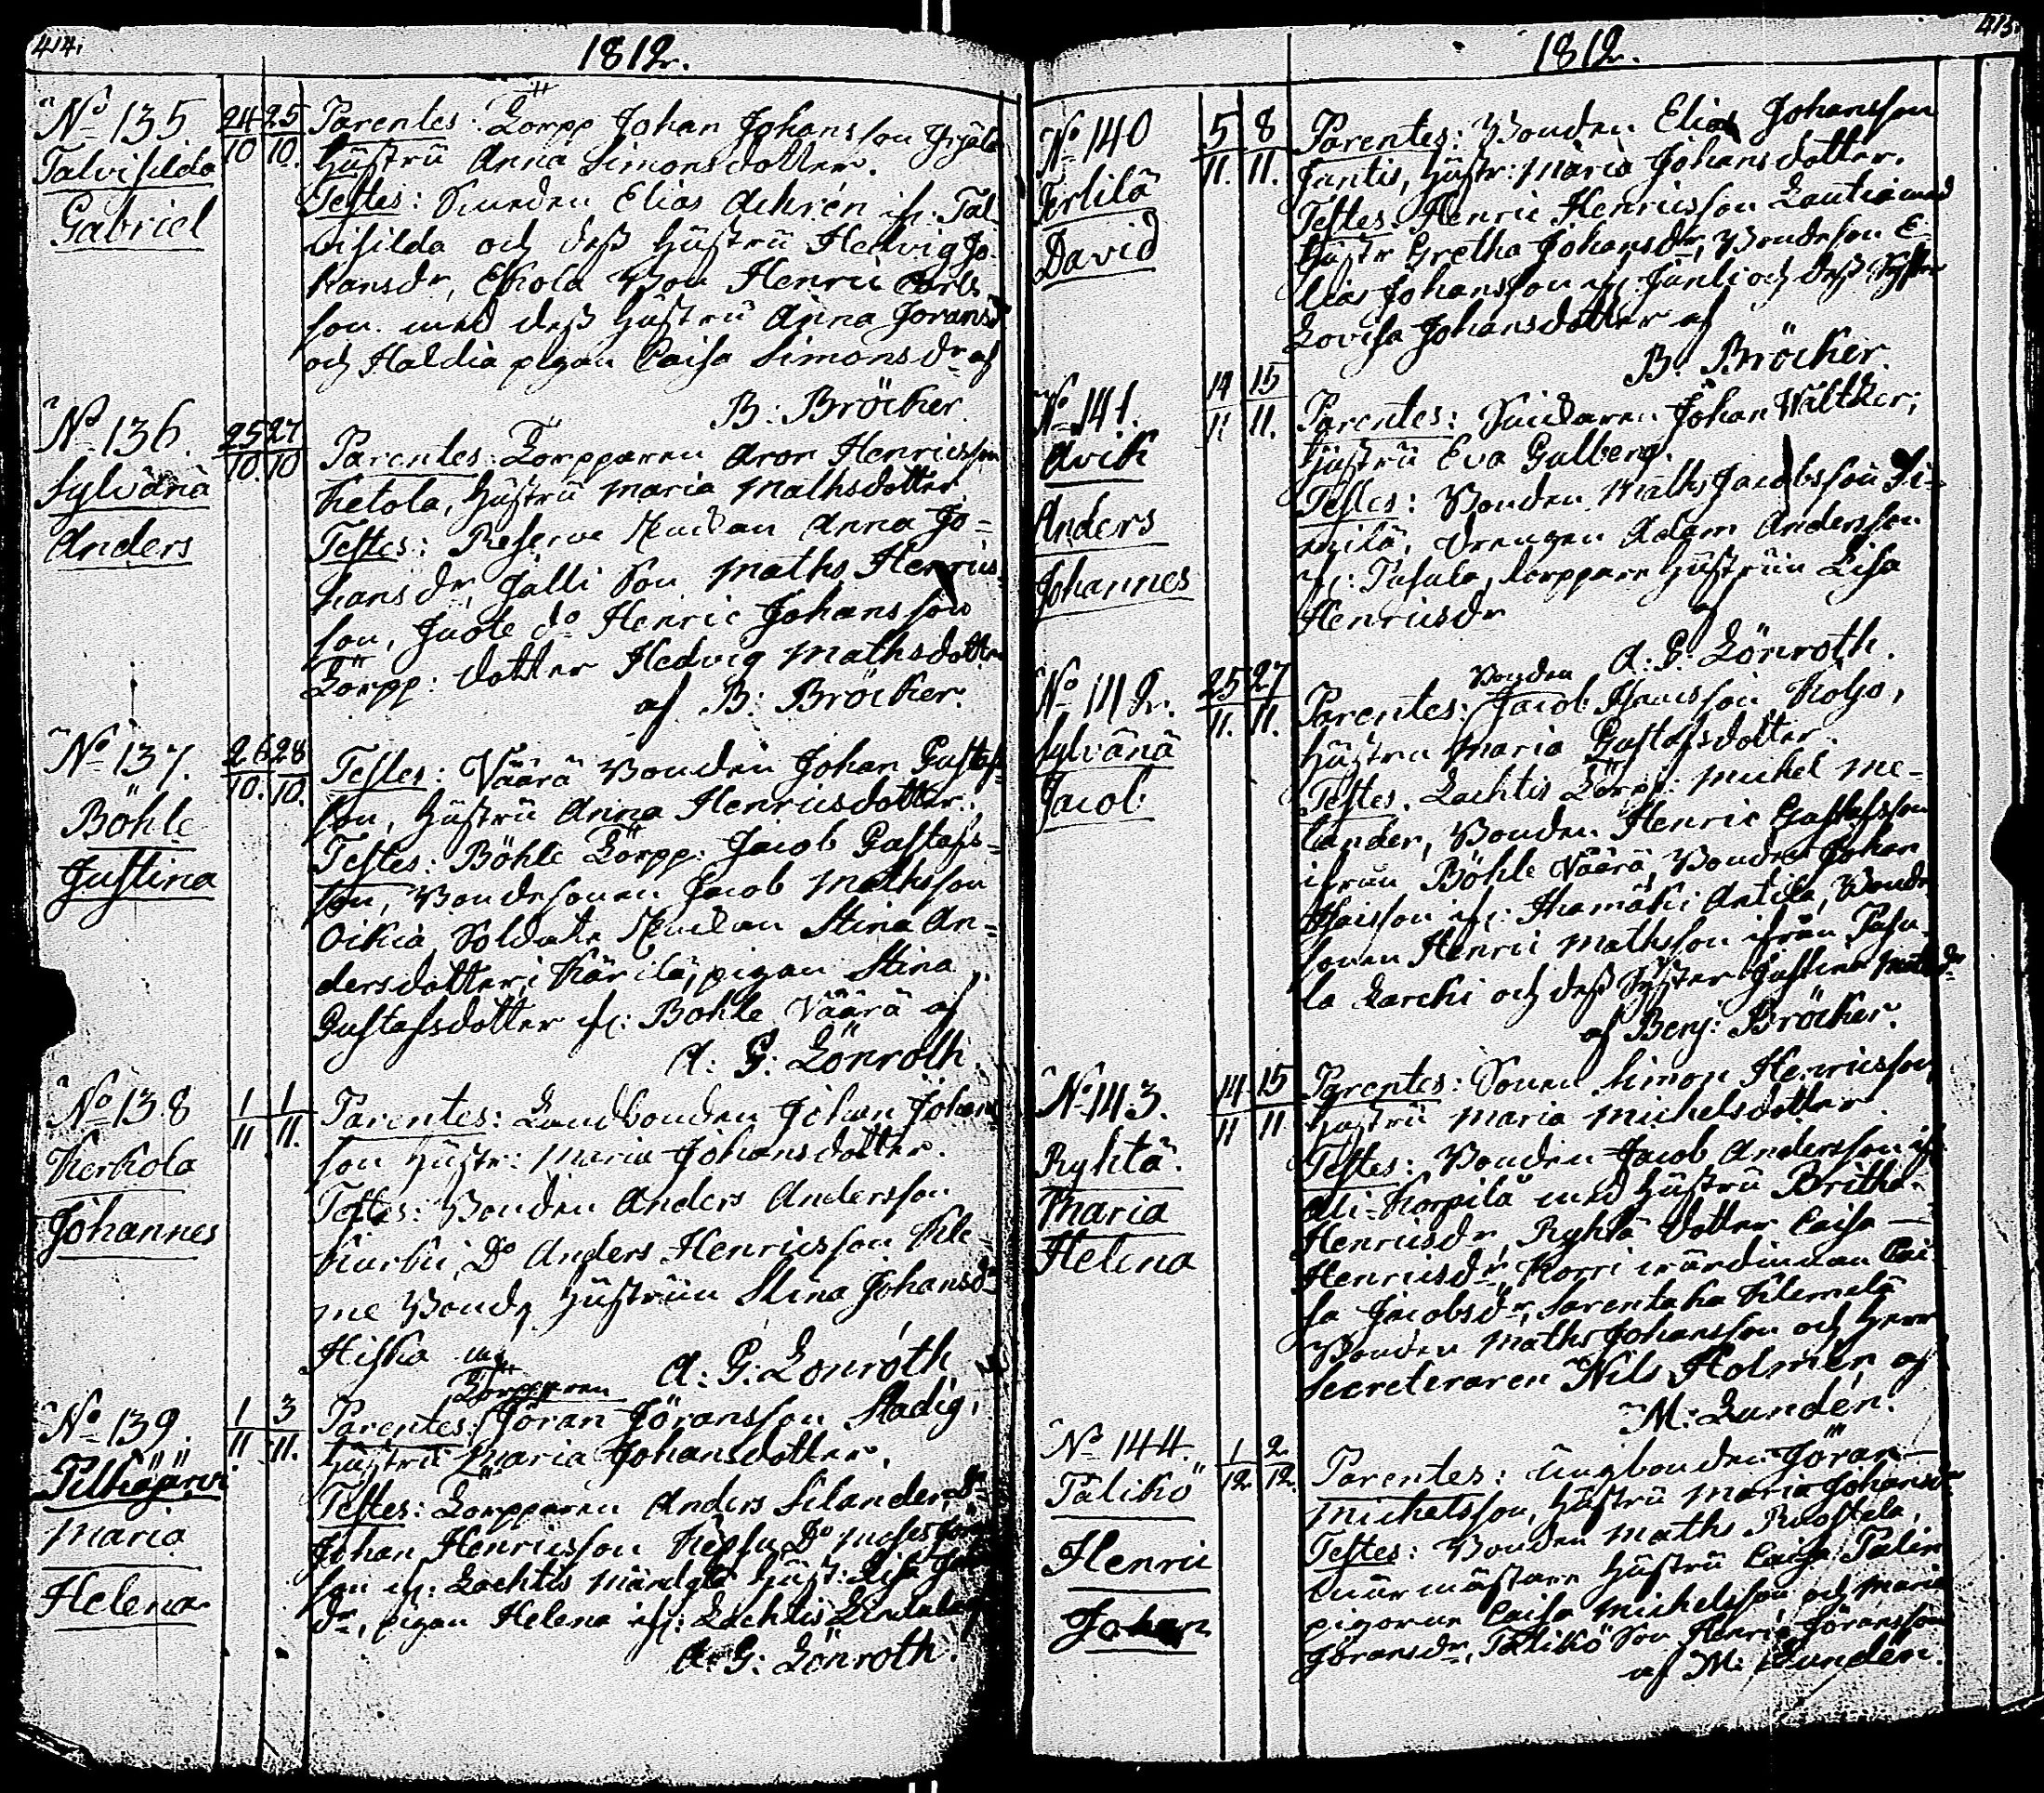 414.
1812.
No 135
Talvisilda
Gabriel
24 25
10 10.
Parentes: Torpp Johan Johansson
Hustru Anna Simonsdotter.
Testes: Smeden Elias Achrén ifr: Tal-
visilda och dess Hustru Hedvig Jo-
hansdr, Eskola Son Henric Carls-
son med dess Hustru Anna Joransd
och Haldia pigan Caisa Simonsdr af
B: Bröcker.
No 136.
Sylvänä
Anders
25 27
10. 10
Parentes: Torpparen Aron Henricsson
Ketola, Hustru Maria Mathsdotter.
Testes: Reserve Enkan Anna Jo=
hansdr, Jalli Son Maths Henrics-
son, Juote do Henric Johansson
Torpp: dotter Hedvig Mathsdotter
af B: Bröcker.
No 137.
Böhle
Justina
26 28
10. 10.
Testes: Väärä Bonden Johan Gustafs-
son, Hustru Anna Henricsdotter.
Testes: Böhle Torpp: Jacob Gustafs=
son, Bondesonen Jacob Mathsson
Oikia, Soldats Enkan Stina An=
dersdotter i Kärilä, pigan Stina
Gustafsdotter ifr: Bohle Väärä af
A: G: Lönroth.
No 138
Kerkola
Johannes
1 1
11 11.
Parentes: Landbonden Johan Johans
son Hustr: Maria Johansdotter.
Testes: Bonden Anders Andersson
Kurki, Do Anders Henricsson Kle-
me Bonde Hustrun Stina Johansd
Hiska
A: G: Lönroth
No 139.
Pitkäjärvi
Maria
Helena
1 3
11 11.
Torpparen
Parentes: Jöran Jöransson Stadig,
Hustru Maria Johansdotter.
Testes: Torpparen Anders Silander, Do
Johan Henricsson Do Moses
son ifr: Lachtis Hust: Lisa
dr, pigan Helena ifr: Lachtis
A: G: Lönroth.
415.
1812.
No 140
Jerlilä
David
5 8
11. 11.
Parentes: Bonden Elias Johansson
Juntis, Hustr: Maria Johansdotter.
Testes: Henric Henricsson Lautia med
Hustr Gretha Johansdr, Bondeson E-
lias Johansson ifr: Junti och dess Syster
Lovisa Johansdotter af
B: Bröcker.
No 141.
Avik
Anders
Johannes
14 15
11 11.
Parentes: Johan Waltker,
Hustru Eva Gulberg.
Testes: Bonden Maths Jacobsson
milä, drengen Adam Andersson
ifr: Pasula, torppare Hustrun Lisa
Henricsdr af
A: G: Lönroth.
No 142.
Sylvänä
Jacob
25 27
11. 11.
Bonden
Parentes: Jacob Koljo,
Hustru Maria Gustafsdotter.
Testes. Lachtis Torpp: Michel Me-
lander, Bonden Henric Gustafsson
ifrån Böhle Väärä, Bonden Johan
ifr: Antila, Bonde
sonen Henric Mathsson ifrån Pasu-
la Larcki och dess Syster Justina Mathsdr
af Benj: Bröcker.
No 143.
Ryhtä.
Maria
Helena
14 15
11 11
Parentes: Sonen Simon Henricsson,
Hustru Maria Michelsdotter.
Testes: Bonden Jacob Andersson ifr
Ali-Korpilä med Hustru Britha
Henricsdr, Ryhtä dotter Caisa
Henricsdr, Korri värdinnan Cai-
sa Jacobsdr, Sarentaka Klemelä
Bonden Maths Johansson och Herr
Secreteraren Nils Holmén af
M: Lundén.
No 144.
Talikko
Henric
Johan
1 2
12 12.
Parentes: Ungbonden Jöran
Michelsson, Hustru Maria Johansdr
Testes: Bonden Maths Ruostela,
Murmästare Hustru Caisa Palin
pigorne Caisa Michelsson och Maria
Göransdr, Talikko Son Henric Göransson
af M: Lundén.